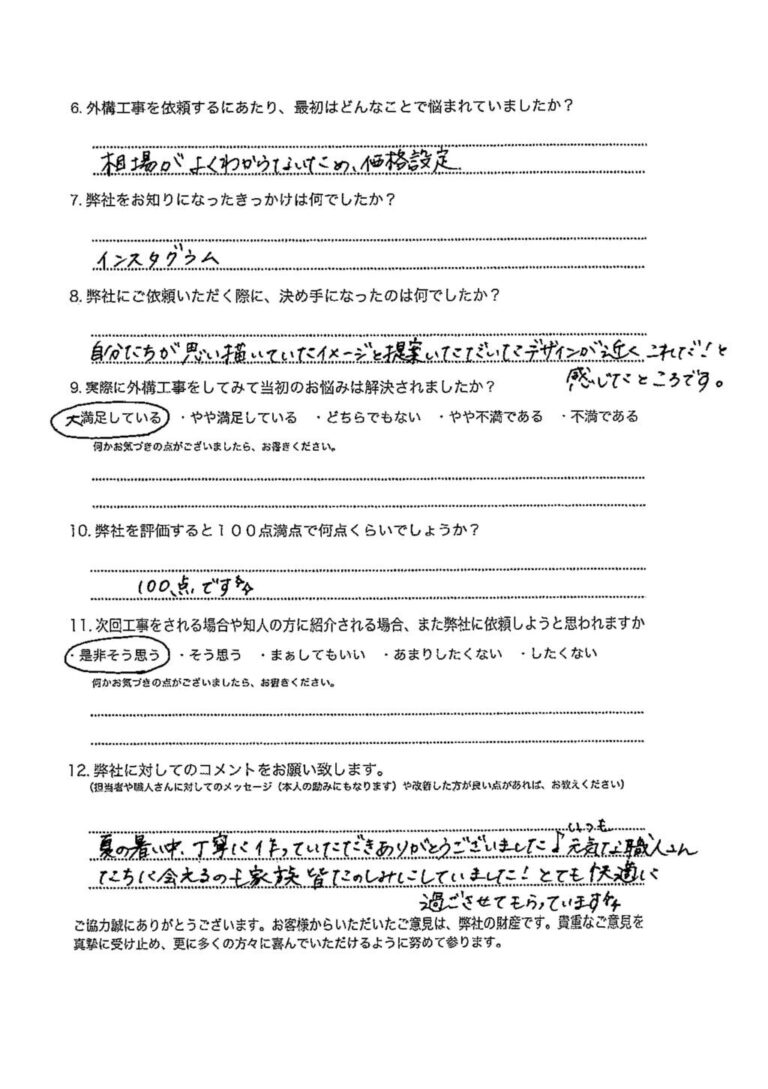 6. 外構工事を依頼するにあたり、最初はどんなことで悩まれていましたか？
相場がよくわからないため、価格設定
7. 弊社をお知りになったきっかけは何でしたか？
インスタグラム
8. 弊社にご依頼いただく際に、決め手になったのは何でしたか？
自分たちが思い描いていたイメージと提案いただいたデザインが近くこれだ！と
感じたところです。
9. 実際に外構工事をしてみて当初のお悩みは解決されましたか？
大満足している ・やや満足している ・どちらでもない ・やや不満である ・不満である
何かお気づきの点がございましたら、お書きください。
10. 弊社を評価すると１００点満点で何点くらいでしょうか？
100点です☆☆
11. 次回工事をされる場合や知人の方に紹介される場合、また弊社に依頼しようと思われますか
・是非そう思う ・そう思う ・まぁしてもいい ・あまりしたくない ・したくない
何かお気づきの点がございましたら、お書きください。
12. 弊社に対してのコメントをお願い致します。
（担当者や職人さんに対してのメッセージ（本人の励みにもなります）や改善した方が良い点があれば、お教えください）
いつも
夏の暑い中、丁寧に作っていただきありがとうございました♪元気な職人さん
たちに会えるのも家族皆たのしみにしていました！とても快適に
過ごさせてもらっています☆☆
ご協力誠にありがとうございます。お客様からいただいたご意見は、弊社の財産です。貴重なご意見を
真摯に受け止め、更に多くの方々に喜んでいただけるように努めて参ります。